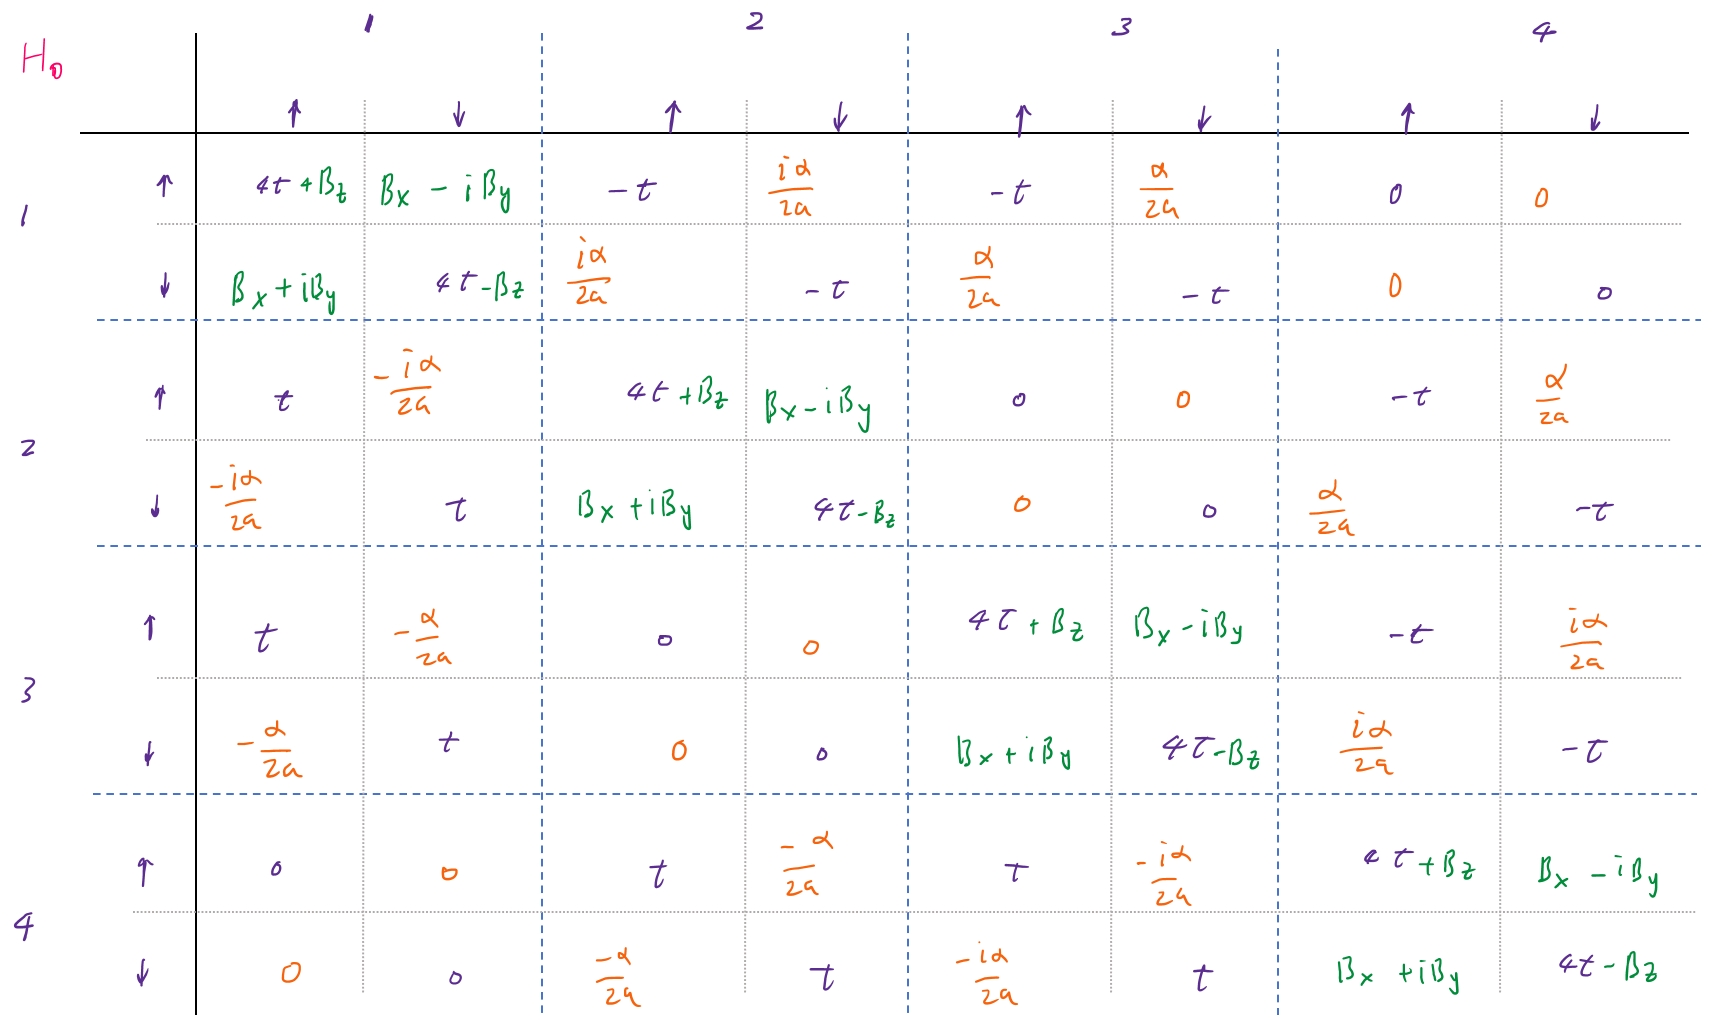 H₀ 1 2 3 4
↑ ↓ ↑ ↓ ↑ ↓ ↑ ↓
1 ↑ 4t+Bz Bx - iBy -t iα/2a -t α/2a 0 0
↓ Bx+iBy 4t-Bz iα/2a -t α/2a -t 0 0
2 ↑ t -iα/2a 4t+Bz Bx-iBy 0 0 -t α/2a
↓ -iα/2a t Bx+iBy 4t-Bz 0 0 α/2a -t
3 ↑ t -α/2a 0 0 4t+Bz Bx-iBy -t iα/2a
↓ -α/2a t 0 0 Bx+iBy 4t-Bz iα/2a -t
4 ↑ 0 0 t -α/2a t -iα/2a 4t+Bz Bx-iBy
↓ 0 0 -α/2a t -iα/2a t Bx+iBy 4t-Bz